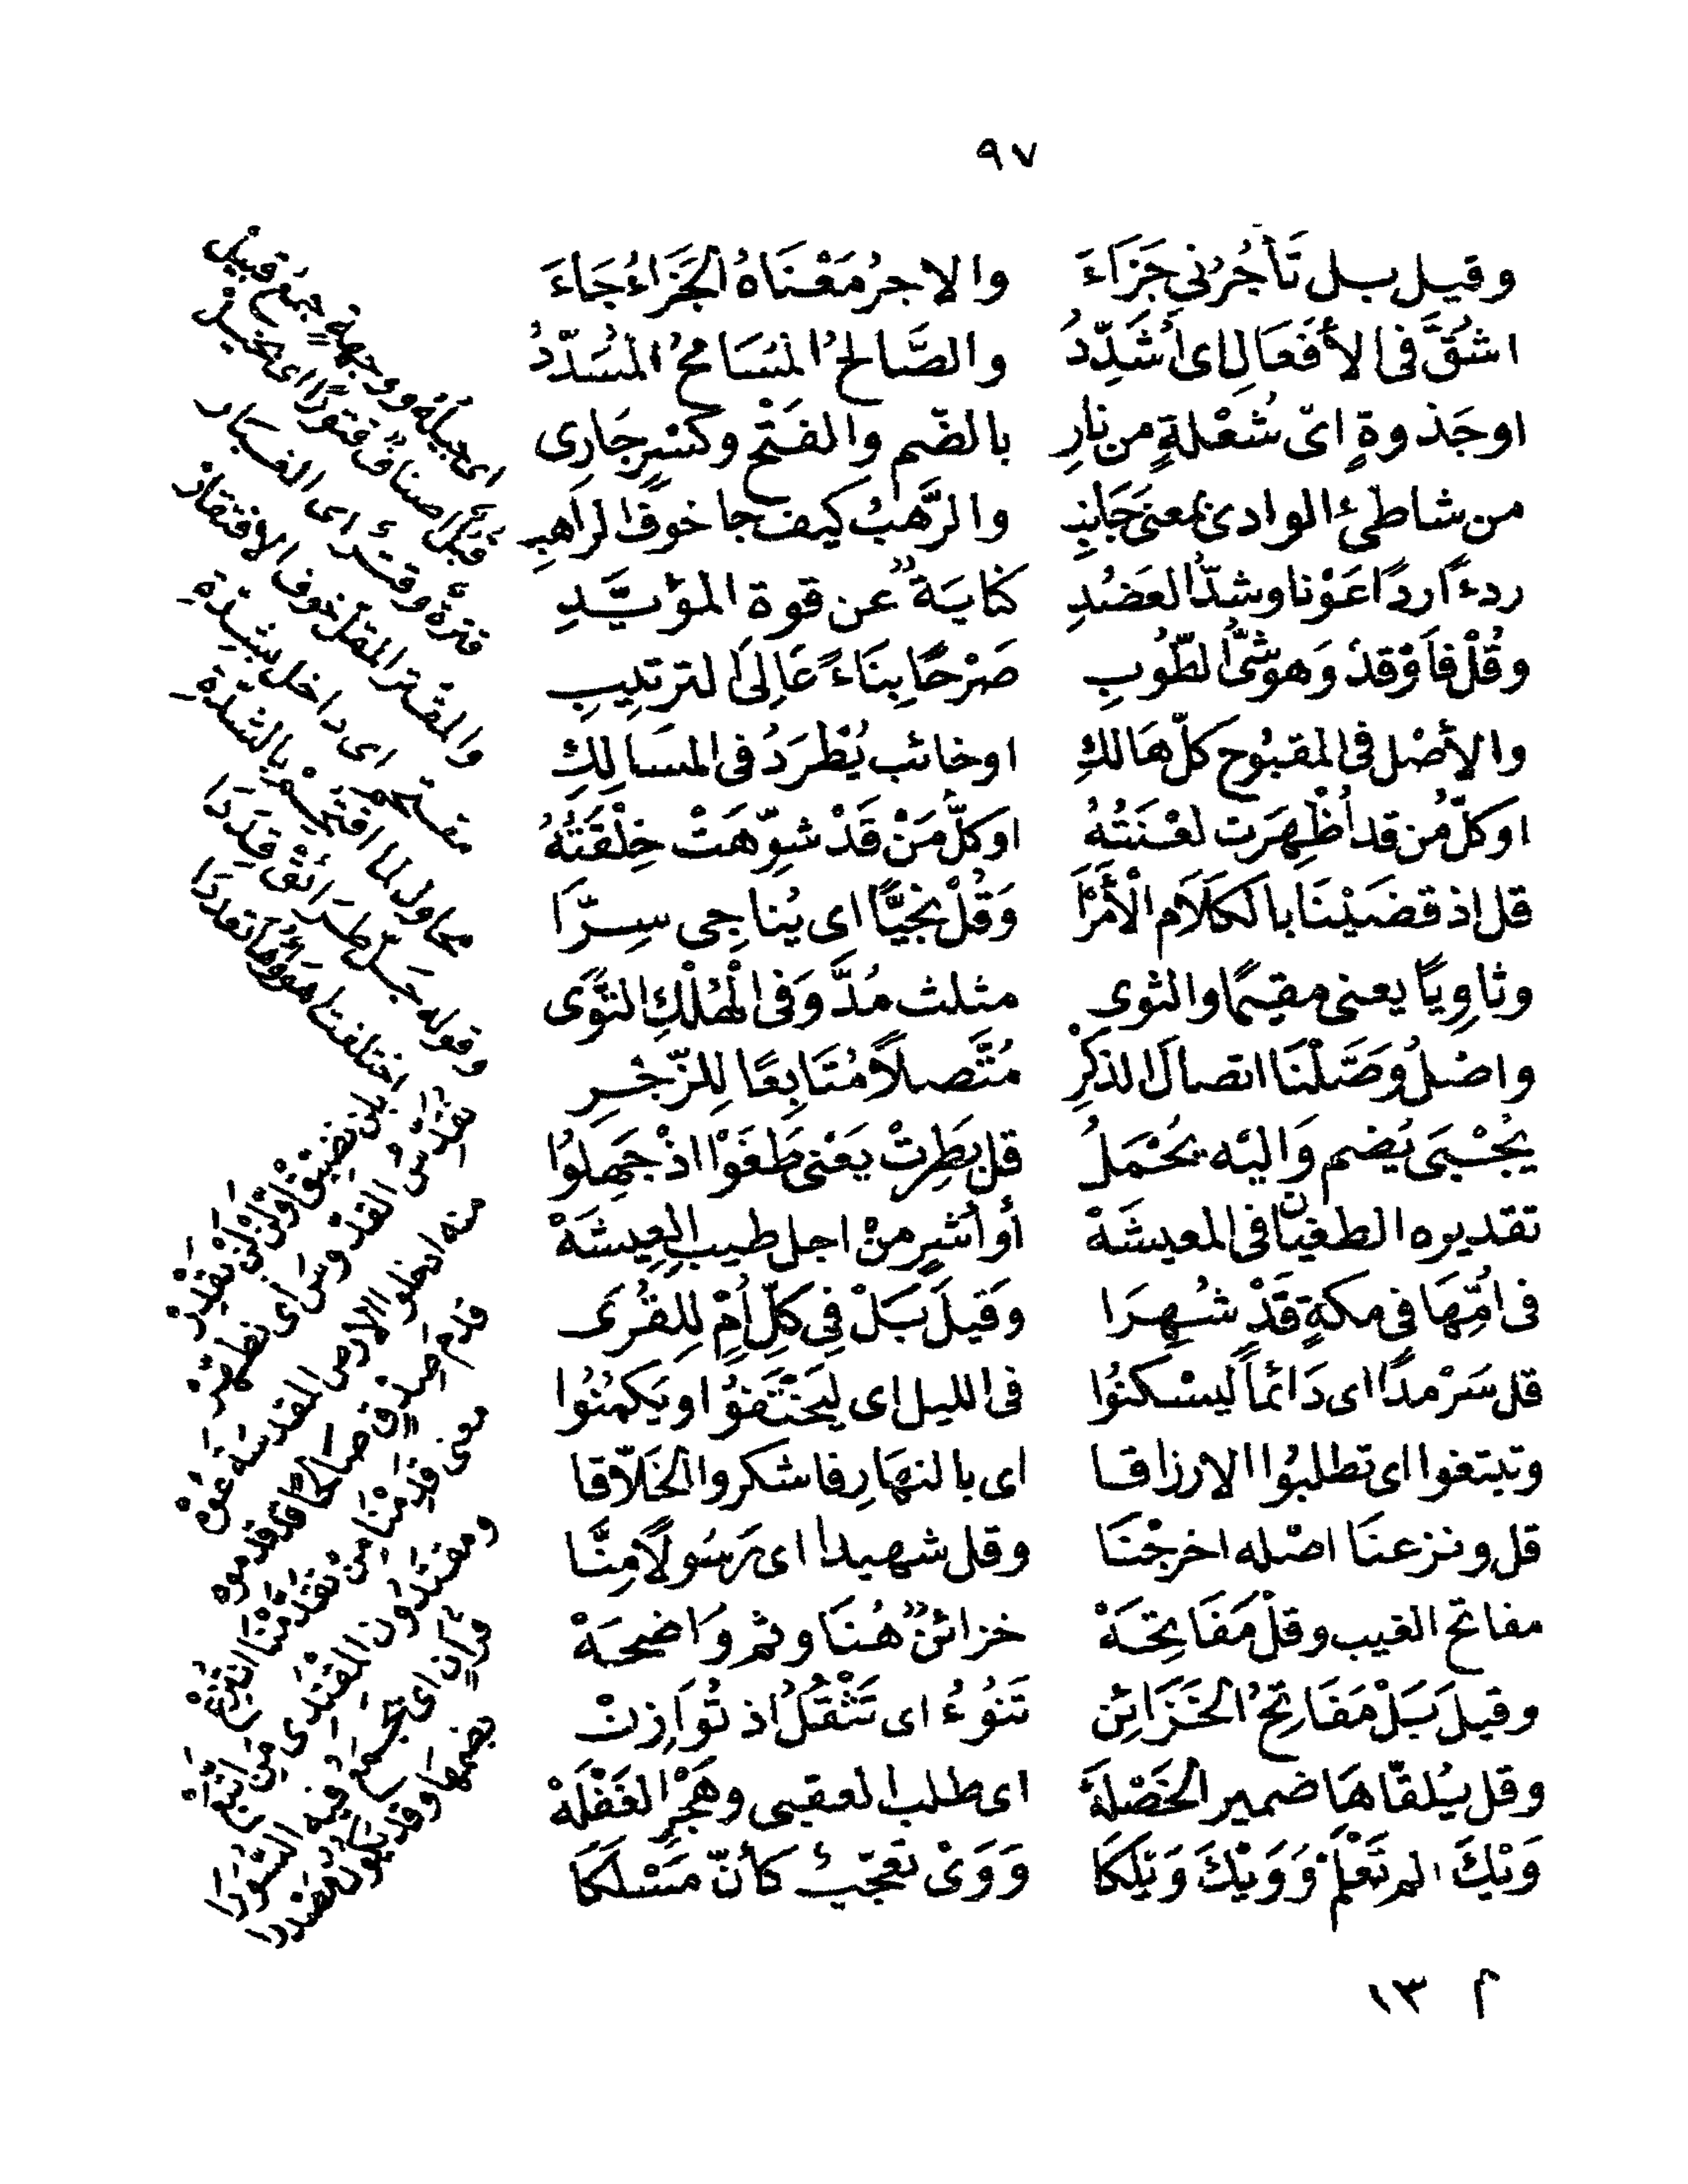 ٩٧
وقيل بل تَأجُرُني جَزَاءَ والاجرُ مَعْنَاهُ الجَزَاءُ جَاءَ
اشُقَّ فى الأفعَالِ اى أُشَدِّدُ والصَّالحُ المُسَامحُ المُسَدّدُ
اوجَذوةٍ اىّ شُعْلةٍ من نارِ بالضّم والفَتْحِ وكسْرٍ جَارِى
من شاطئ الوادى بمعنى جَانِبِ والرَّهبُ كيف جا خوفُ الراهبِ
ردءًا رداً عَوْنا وشدُّ العَضُدِ كنايَةٌ عن قوة المؤيَّدِ
وقُلْ فاَوْقدْ وَهو شىُّ الطّوبِ صَرْحًا بِنَاءً عَالِىَ الترتيبِ
والأصْل فى المقبُوح كلّ هَالكِ اوخائب يُطْرَدُ فى المسَالِكِ
اوكلّ مُن قد اُظْهِرَت لعْنَتُهُ اوكلّ مَنْ قَدْ شوّهَتْ خِلْقَتُهُ
قل اذ قضَيْنَا بالكَلَام الْأمْرَا وَقُلْ نجيًّا اى يُناجِى سِرَّا
وثاوِيًا يعنى مقيمًا والثوى مثلث مُدَّ وَفى الْهُلْكِ التَّوَى
واصْلُ وَصَّلْنَا اتصالَ الذكْرِ مُتَّصلاً مُتَابِعًا لِلزّجْرِ
يُجْبَى يُضم وَاليْه يُحْمَلُ قل بَطِرَتْ يَعْنى طَغَوْا اذْ جَهِلوُا
تقديره الطغيَانَ فى المعيشَةْ أو أشَرٍ منْ اجل طيب العِيشَةْ
فى اُمِّهَا فى مكةٍ قَدْ شُهِرَا وَقيلَ بَلْ فى كلِّ أُمٍّ لِلقُرَى
قل سَرْمدًا اى دَائمًا ليسْكنُوا فى الليل اى لِيَخْتَفوُا او يَكمُنُوا
وتبتغوا اى تطلبُوا الارزاقا اى بالنهَارِ فاشكروا الخَلّاقا
قل ونزعنَا اصْله اخرجْنَا وقل شهيدا اى رَسُولًا مِنَّا
مفاتح الغيب وقلْ مَفَاتِحَهْ خزائنٌ هُنَا وثم وَاضحَهْ
وقيلَ بَلْ مَفَاتِحُ الخَزَائِن تَنُوءُ اى تَثْقُلُ اذ تُوَازِنْ
وقل يُلقّاهَا ضمير الخَصْلَةْ اى طلب العقبى وهَجْرِ الغَفْلَهْ
وَيْكَ الم تَعْلَمْ وَوَيْكَ وَيْلكَا وَوَىْ تعجّبٌ كأنّ مَسْلَكَا
اى جيلُهُ ووجهةٍ جمْعُ قبيْل
قَبْلُ اصنافٌ فتورًا اى بخيلْ
فترةٌ وقترٌ اى الغبَار
والمقتر المقل خوف الافتقارْ
مقتحم اى داخل بشدةِ
محاول لما اقتحمْ بالشدّةِ
وقوله طرَائقْ قِدَدَا
اختلفت اهوَاؤهَا تعددَا
بان نضيق اوْ لَن نقْدِرْ
نقدّس القدوسَ اى نطهّرْ
منه ادخلوا الارض المقدسَةَ
قدَمَ صِدْقٍ صالحًا قد قدموه
معنى قدِمْنَا من تقدمْنَا
ومقتدُون المقتدى من اتبعْ
قرآن اى تجمع فيه السُّوَرَا
بضمّها وقد يكون مصْدرا
م ١٣